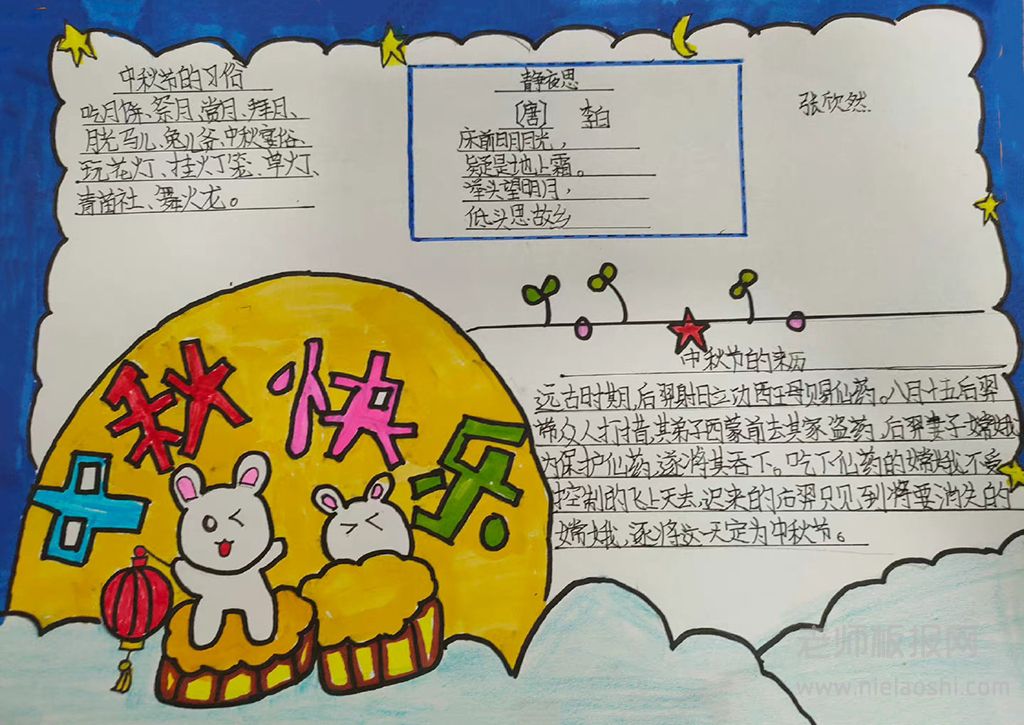 中秋节的习俗
吃月饼、祭月、赏月、拜月、
月光马儿、兔儿爷、中秋宴俗、
玩花灯、挂灯笼、草灯、
青苗社、舞火龙。
静夜思
[唐] 李白
床前明月光，
疑是地上霜。
举头望明月，
低头思故乡
张欣然
中秋快乐
中秋节的来历
远古时期,后羿射日立功,西王母赐仙药。八月十五后羿
带众人打措,其弟子西蒙前去其家盗药,后羿妻子嫦娥
为保护仙药,逐将其吞下。吃下仙药的嫦娥不受
控制的飞上天去,迟来的后羿只见到将要消失的
嫦娥,逐将这一天定为中秋节。
老师板报网
www.nielaoshi.com